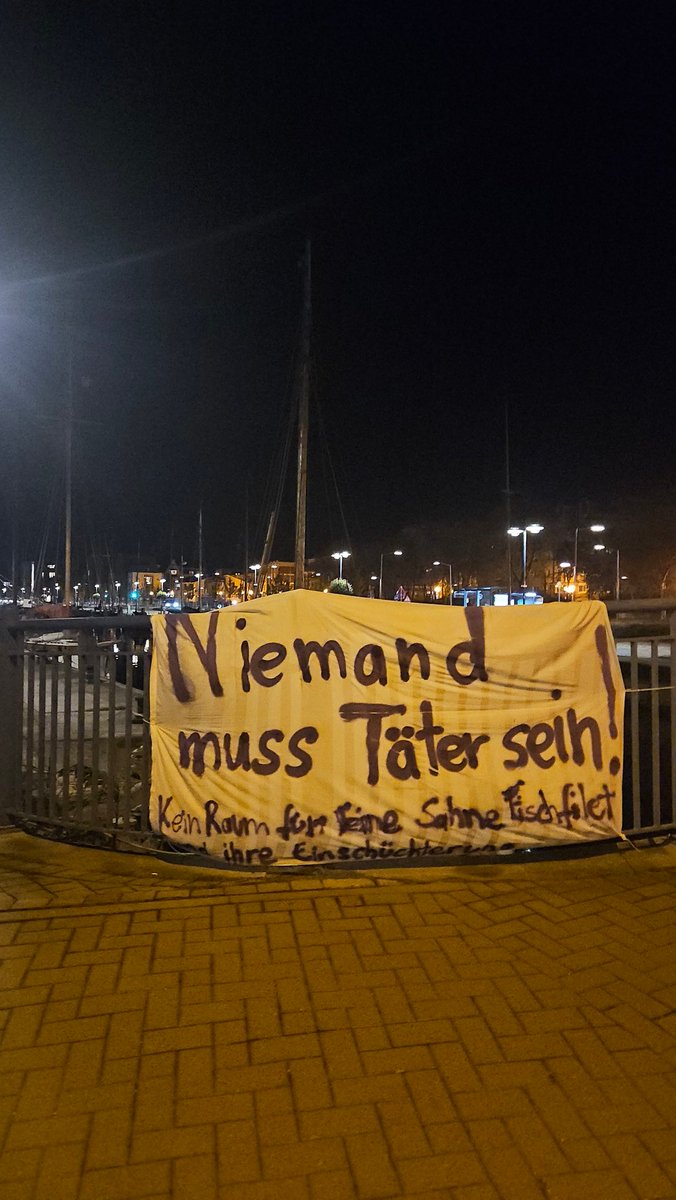 Niemand
muss Täter sein!
Kein Raum für Feine Sahne Fischfilet
und ihre Einschüchterung